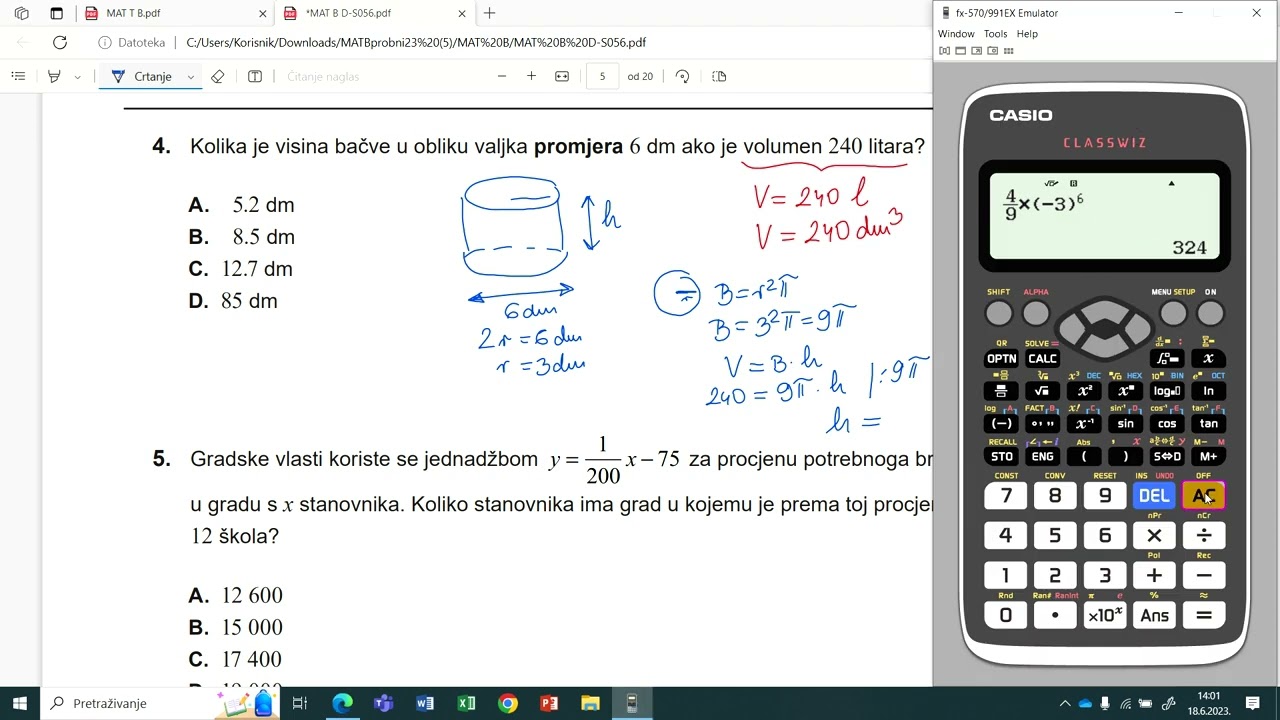 MAT T B.pdf
*MAT B D-S056.pdf
Datoteka
C:/Users/Korisnik/Downloads/MATBprobni23%20(5)/MAT%20B/MAT%20B%20D-S056.pdf
Crtanje
Čitanje naglas
5
od 20
4. Kolika je visina bačve u obliku valjka promjera 6 dm ako je volumen 240 litara?
A. 5.2 dm
B. 8.5 dm
C. 12.7 dm
D. 85 dm
h
6 dm
2r = 6 dm
r = 3 dm
V = 240 l
V = 240 dm³
r
B = r²π
B = 3²π = 9π
V = B · h
240 = 9π · h /: 9π
h =
5. Gradske vlasti koriste se jednadžbom y = 1/200 x − 75 za procjenu potrebnoga br
u gradu s x stanovnika. Koliko stanovnika ima grad u kojemu je prema toj procjen
12 škola?
A. 12 600
B. 15 000
C. 17 400
fx-570/991EX Emulator
Window Tools Help
CASIO
CLASSWIZ
4/9×(−3)⁶
324
SHIFT ALPHA MENU SETUP ON
QR SOLVE =
OPTN CALC x
x³ DEC HEX 10ˣ BIN eˣ OCT
√ x² ln
log A FACT B x! C sin⁻¹ D cos⁻¹ E tan⁻¹ F
(−) x⁻¹ sin cos tan
RECALL Abs M− M
STO ENG ( ) S⇔D M+
CONST CONV RESET INS UNDO OFF
7 8 9 DEL AC
nPr nCr
4 5 6 × ÷
Pol Rec
1 2 3 + −
Rnd Ran# RanInt π e % ≈
0 • ×10ˣ Ans =
Pretraživanje
14:01
18.6.2023.